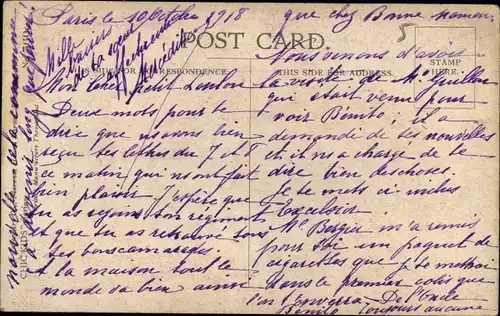 Paris le 10 Octobre 1918
Mon Cher petit Loulou
Deux mots pour te
dire que ns avons bien
reçu tes lettres du 7 et 8
ce matin qui ns ont fait
bien plaisir. J'espère que
tu as rejoins ton régiment
et que tu as retrouvé tous
tes bons camarades.
A la maison tout le
monde va bien ainsi
que chez Bonne maman.
Nous venons d'avoir
la visite de Mr
qui était venu pour
voir Bénito; il a
demandé de tes nouvelles
et il m'a chargé de te
dire bien des choses.
Je te mets ci inclus
Excelsior.
Me m'a remis
pour toi un paquet de
cigarettes que je te mettrai
dans le premier colis que
l'on t'enverra. De l'Oncle
Bénito toujours aucune
nouvelle
Mille
baisers
de ta soeur
Mercédès
POST CARD.
THIS SIDE FOR CORRESPONDENCE.
THIS SIDE FOR ADDRESS.
STAMP
HERE.
5